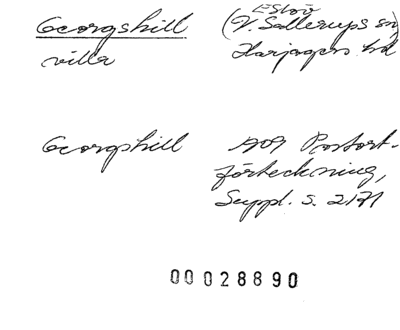 Georgshill
villa
Eslöv
(V. Sallerups sn)
Harjagers hd
Georgshill
1909 Postort-
förteckning,
Suppl. s. 2171
00028890